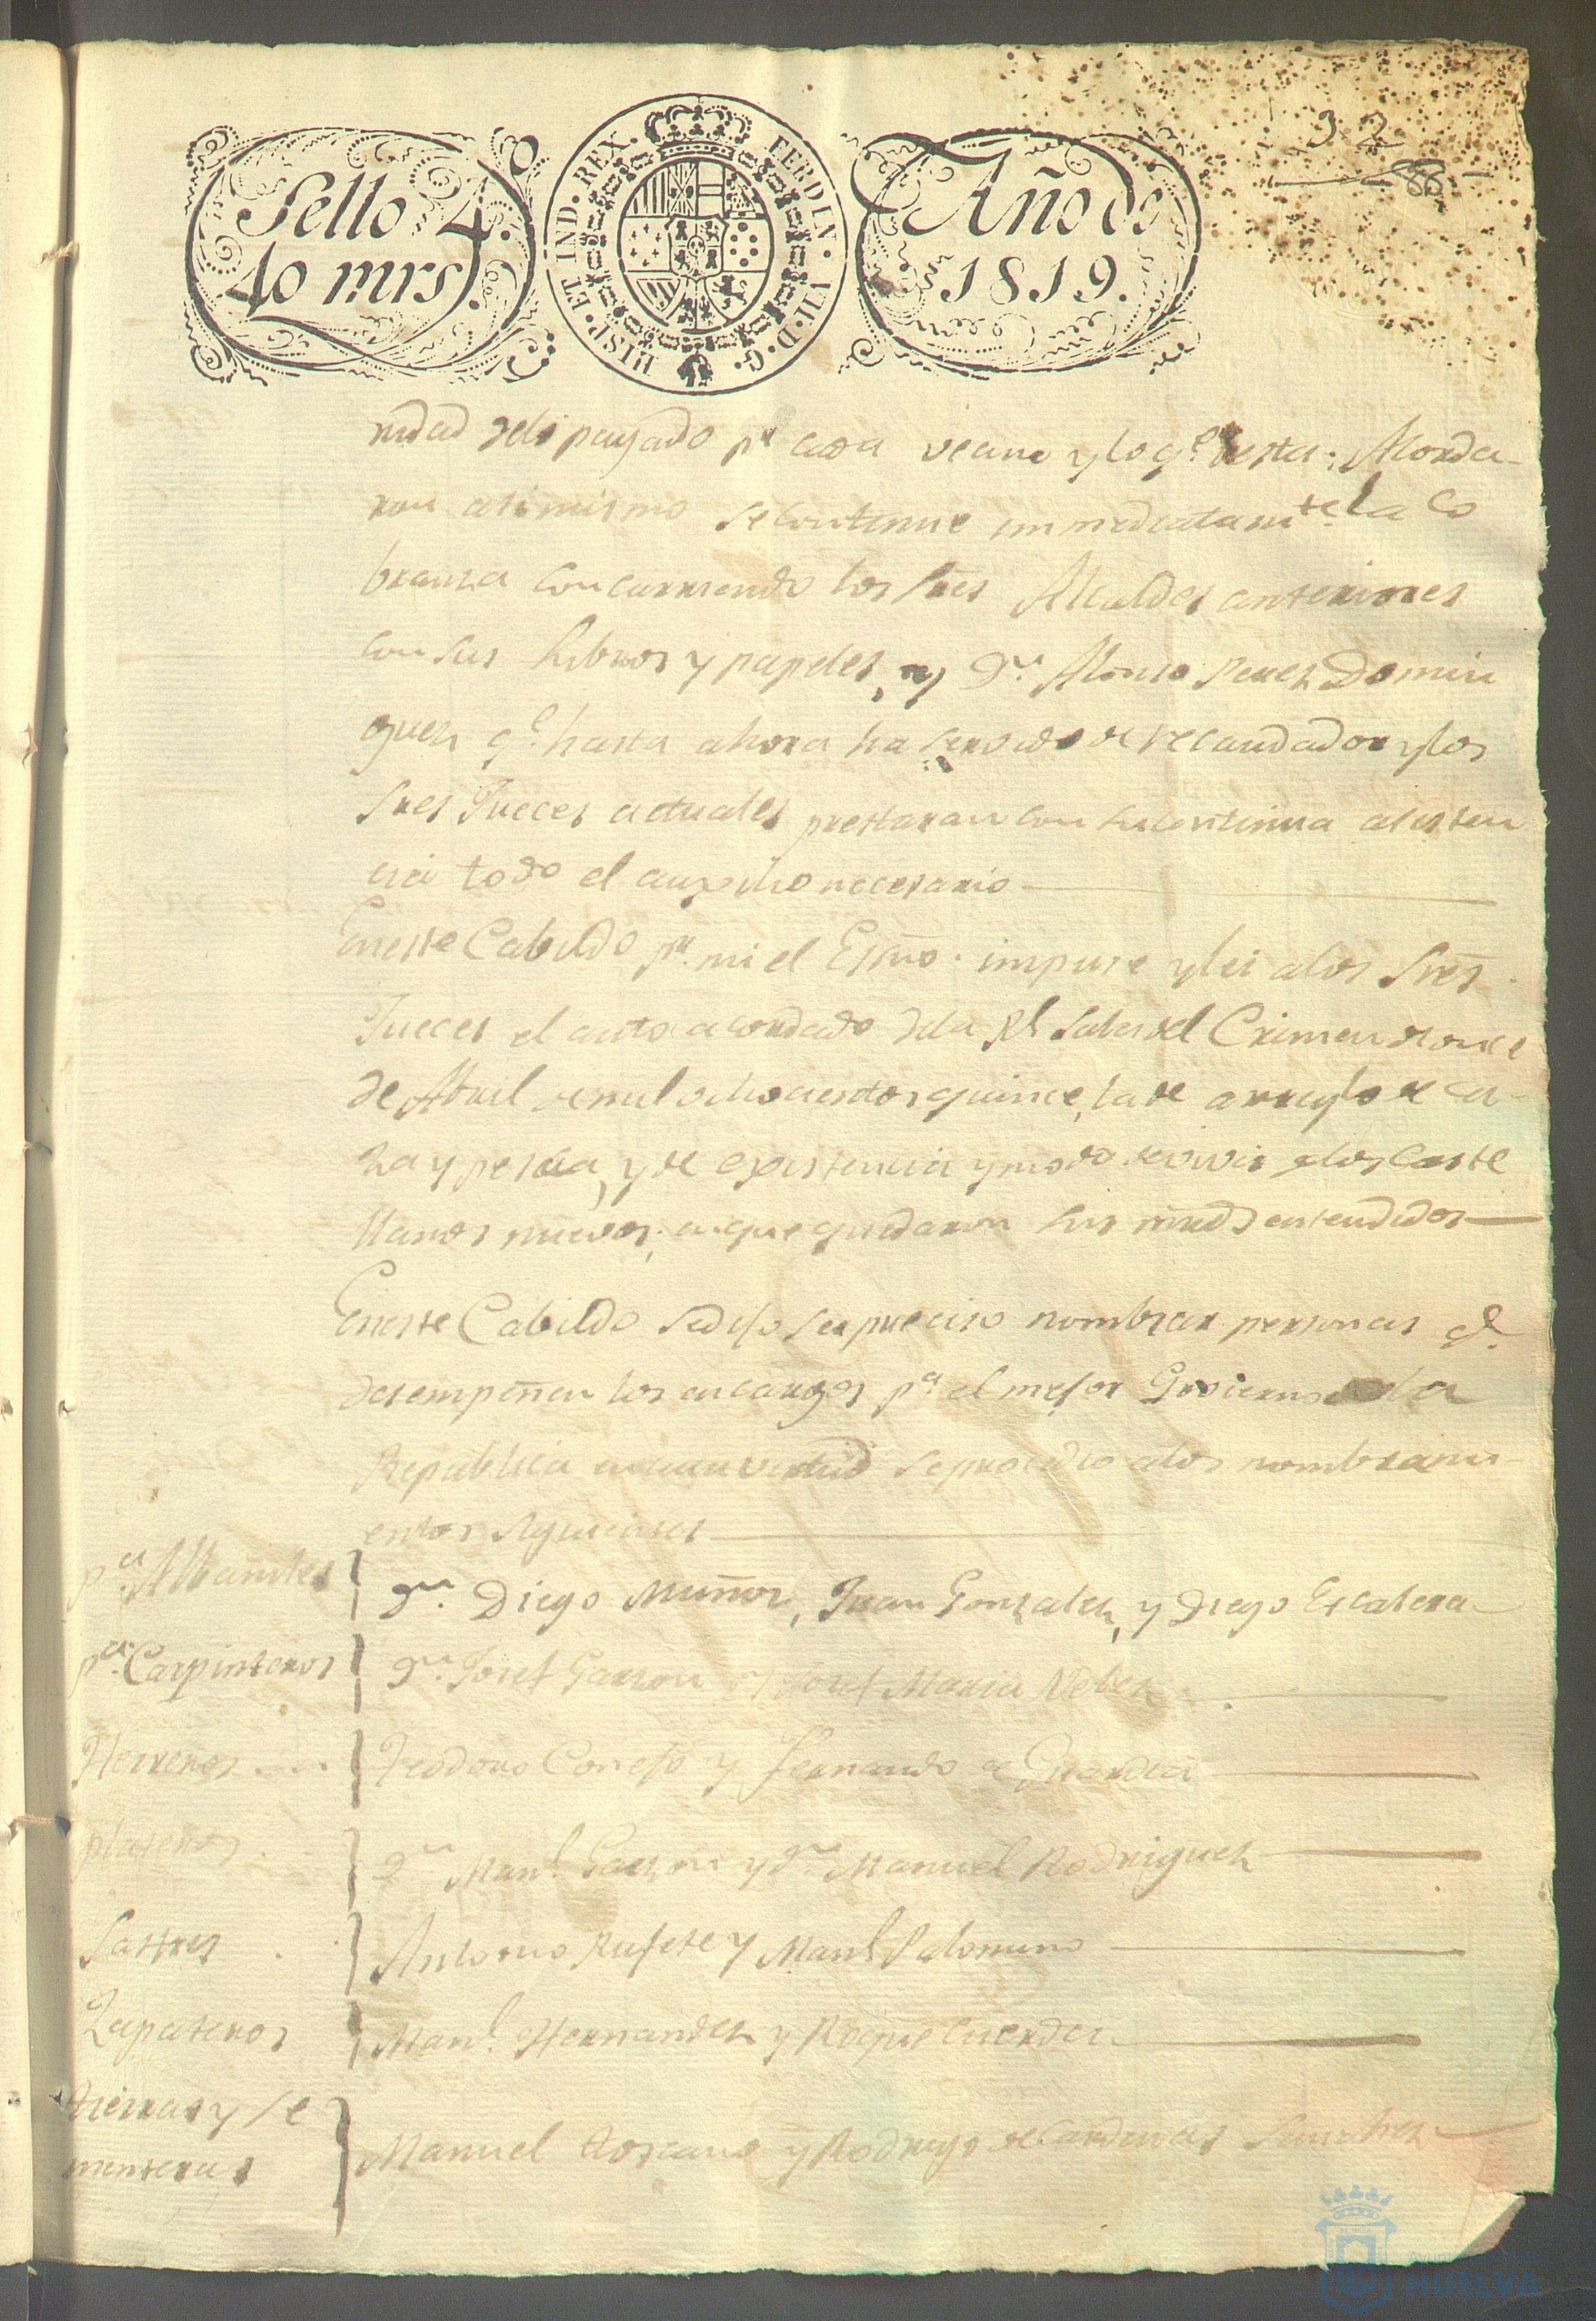 32
88
Sello 4.º
40 mrs.
HISP. ET IND. REX. FERDIN. VII. D. G.
Año de
1819.
ridad delo pagado pr cada vecino y lo q.e resta; Acorda-
ron asimismo se continue immediatamte la co
branza concurriendo los Sres Alcaldes anteriores
con sus Libros y papeles, y Dn. Alonso Perez Domin
guez q.e hasta ahora ha servido de recaudador y los
Sres Jueces actuales prestaran con su continua asisten
cia todo el auxilio necesario
En este Cabildo pr. mi el Essno. impuse y lei a los Sres
Jueces el auto acordado dela Rl Sala del Crimen de once
de Abril de mil ochocientos quince, la de arreglo de ca-
za y pesca, y de existencia y modo de vivir de los Caste
llanos nuevos; en que quedaron sus mrds entendidos
En este Cabildo se dijo ser preciso nombrar personas q.e
desempeñen los encargos pa. el mejor Govierno de la
Republica en cuya virtud se procedio a los nombrami-
entos siguientes
pa. Albaniles } Dn. Diego Muñoz, Juan Gonzalez, y Diego Escalera
pa. Carpinteros } Dn. Josef Garzon y Josef Maria Velez
Herreros } Teodoro Conejo y Fernando de Guardia
plateros } Dn Manl. Garzon y Dn. Manuel Rodriguez
Sastres } Antonio Rufete y Manl Palomino
Zapateros } Manl. Hernandez y Roque Cuerda
tierras y se
menteras } Manuel toscano y Rodrigo de Cardenas Sanchez
HUELVA